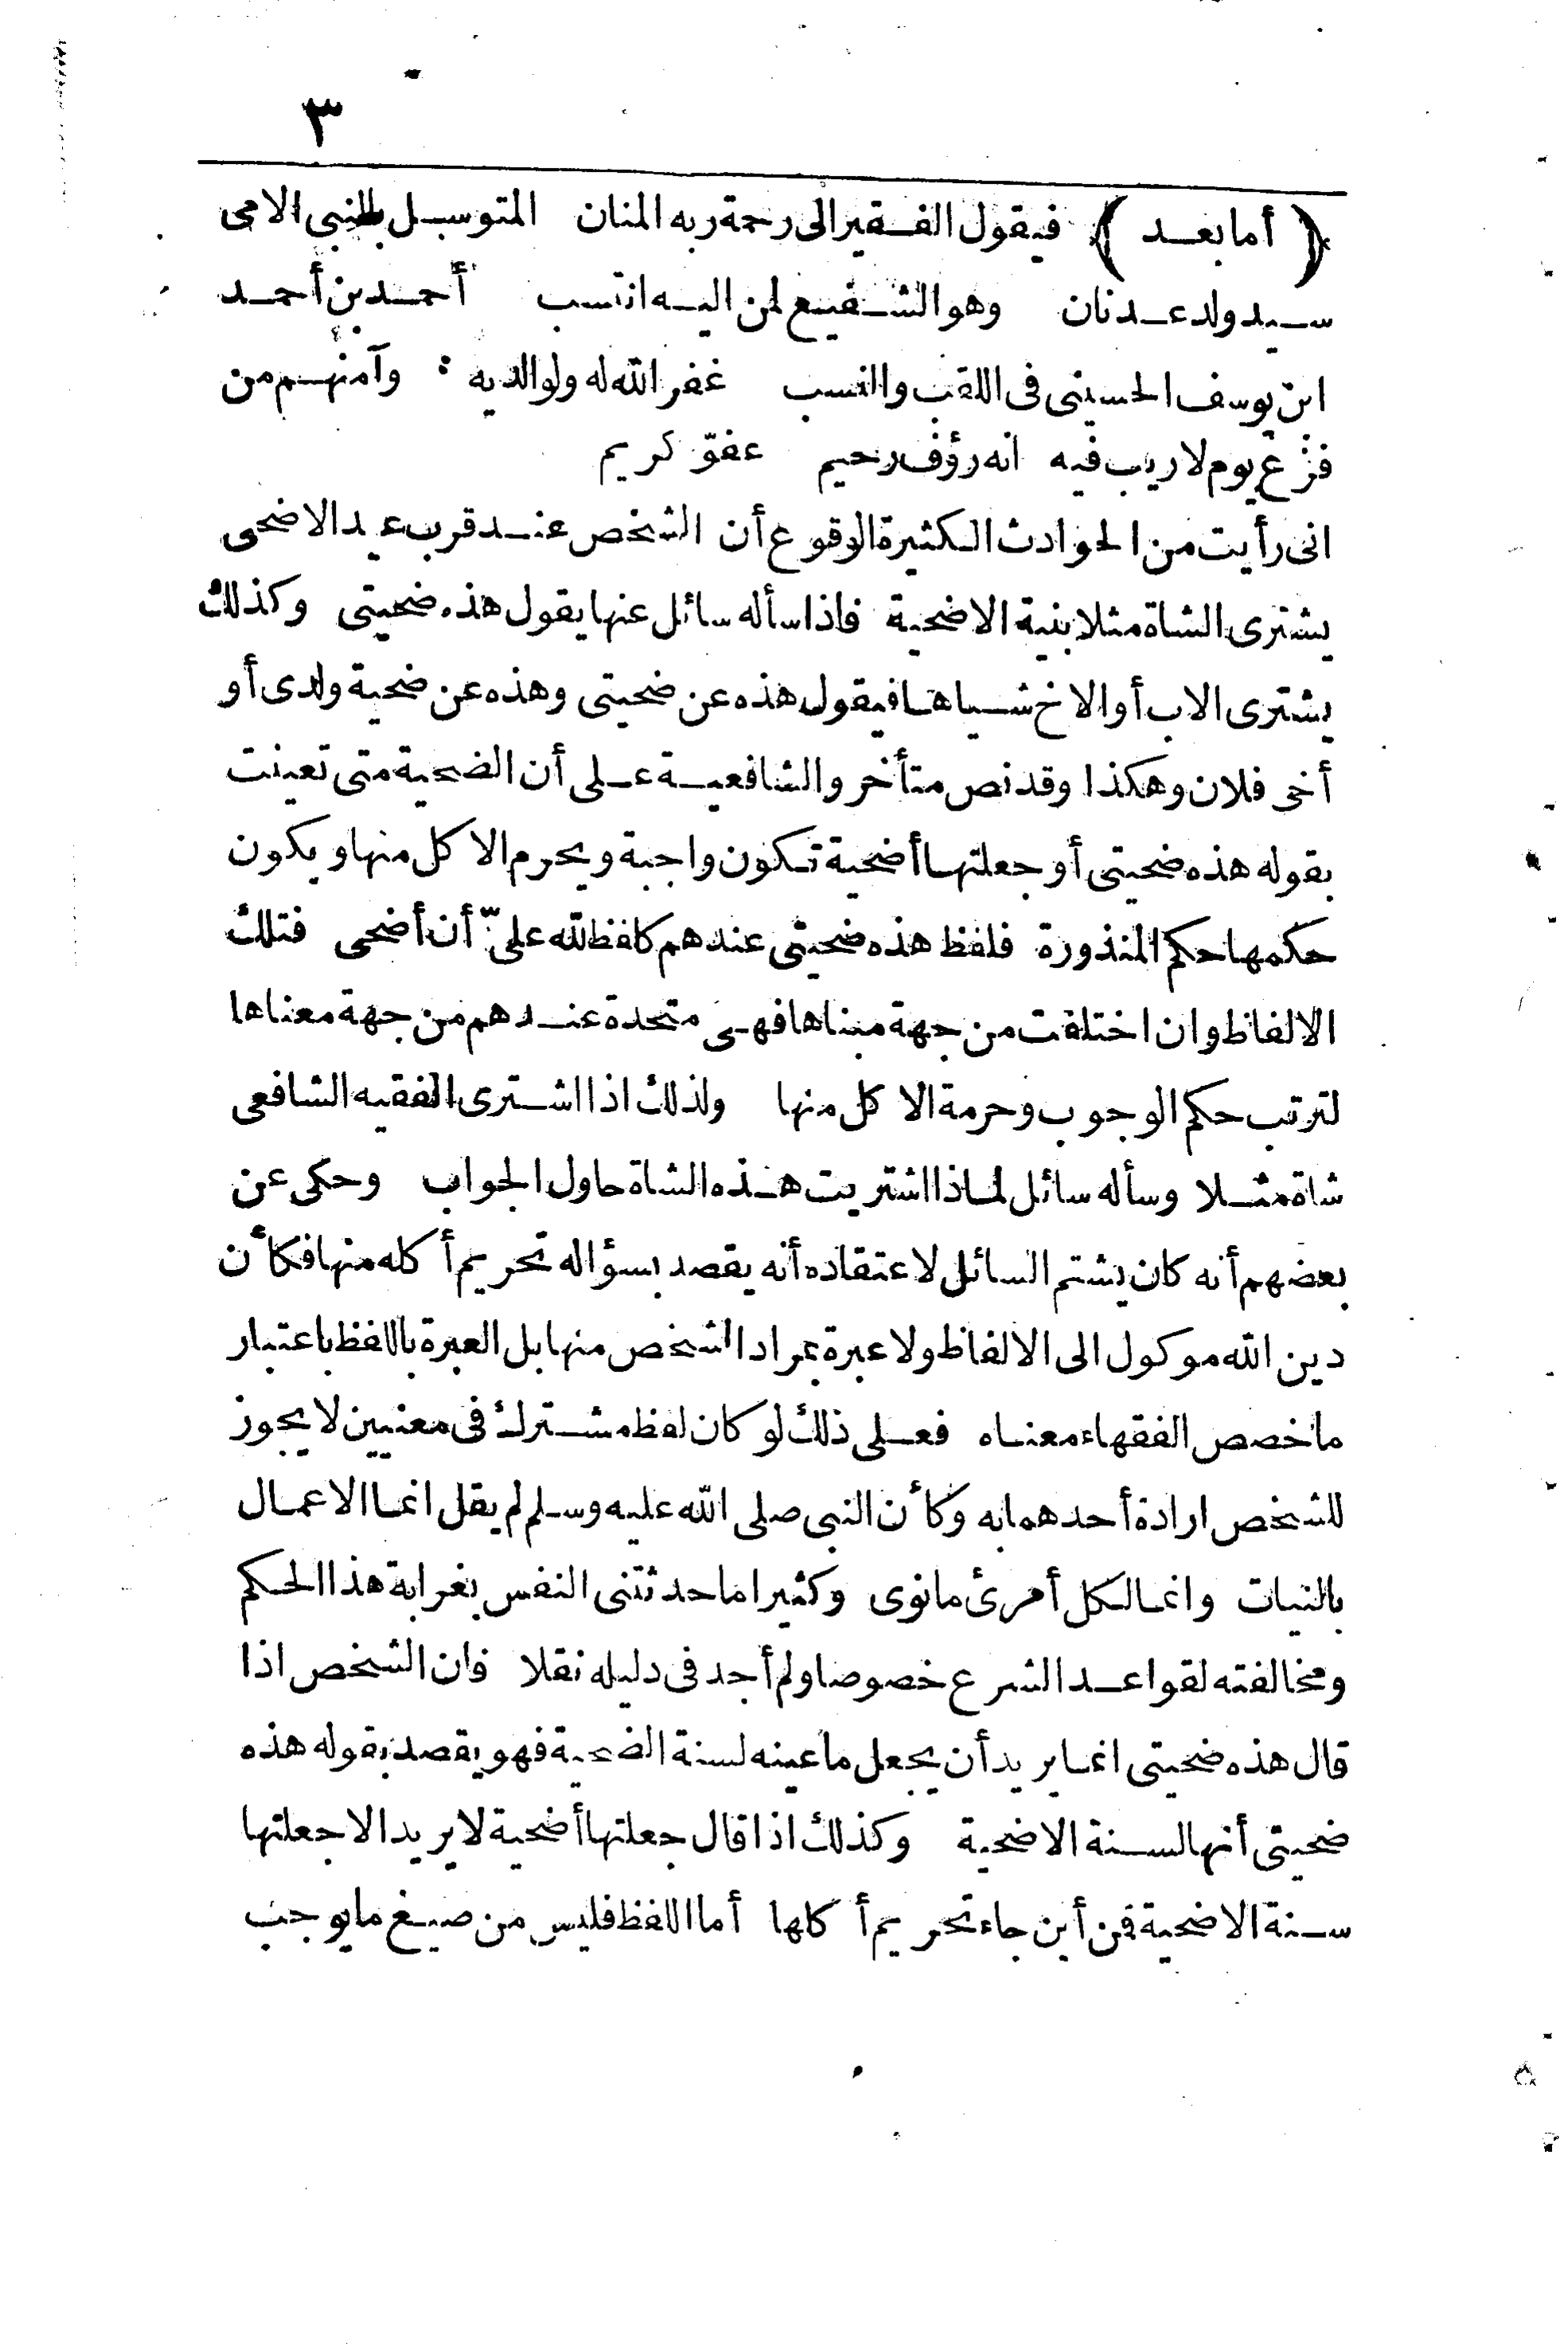 ٣
﴿ أما بعد ﴾ فيقول الفقير الى رحمة ربه المنان المتوسل بالنبى الامى
سيد ولد عدنان وهو الشفيع لمن اليه انتسب أحمد بن أحمد
ابن يوسف الحسينى فى اللقب والنسب غفر الله له ولوالديه وآمنهم من
فزع يوم لا ريب فيه انه رؤف رحيم عفوّ كريم
انى رأيت من الحوادث الكثيرة الوقوع أن الشخص عند قرب عيد الاضحى
يشترى الشاة مثلا بنية الاضحية فاذا سأله سائل عنها يقول هذه ضحيتى وكذلك
يشترى الاب أو الاخ شياها فيقول هذه عن ضحيتى وهذه عن ضحية ولدى أو
أخى فلان وهكذا وقد نص متأخرو الشافعية على أن الضحية متى تعينت
بقوله هذه ضحيتى أو جعلتها أضحية تكون واجبة ويحرم الاكل منها ويكون
حكمها حكم المنذورة فلفظ هذه ضحيتى عندهم كلفظ لله علىّ أن أضحى فتلك
الالفاظ وان اختلفت من جهة مبناها فهى متحدة عندهم من جهة معناها
لترتب حكم الوجوب وحرمة الاكل منها ولذلك اذا اشترى الفقيه الشافعى
شاة مثلا وسأله سائل لماذا اشتريت هذه الشاة حاول الجواب وحكى عن
بعضهم أنه كان يشتم السائل لاعتقاده أنه يقصد بسؤاله تحريم أكله منها فكأن
دين الله موكول الى الالفاظ ولا عبرة بمراد الشخص منها بل العبرة باللفظ باعتبار
ما خصص الفقهاء معناه فعلى ذلك لو كان لفظ مشترك فى معنيين لا يجوز
للشخص ارادة أحدهما به وكأن النبى صلى الله عليه وسلم لم يقل انما الاعمال
بالنيات وانما لكل أمرئ ما نوى وكثيرا ما حدثتنى النفس بغرابة هذا الحكم
ومخالفته لقواعد الشرع خصوصا ولم أجد فى دليله نقلا فان الشخص اذا
قال هذه ضحيتى انما يريد أن يجعل ما عينه لسنة الضحية فهو يقصد بقوله هذه
ضحيتى أنها لسنة الاضحية وكذلك اذا قال جعلتها أضحية لا يريد الا جعلتها
سنة الاضحية فمن أين جاء تحريم أكلها أما اللفظ فليس من صيغ ما يوجب